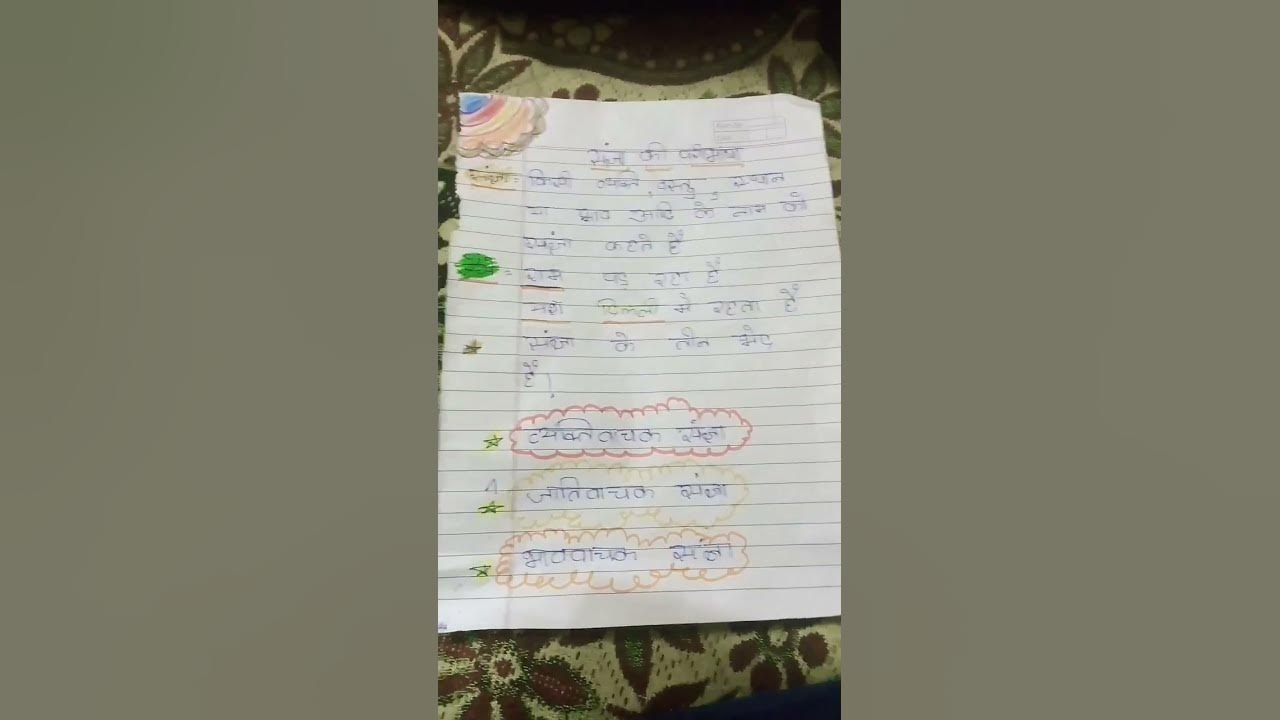 संज्ञा की परीभाषा
संज्ञा = किसी व्यक्ति, वस्तु, स्थान
या भाव आदि के नाम को
संज्ञा कहते हैं
= राम पड़ रहा हैं
दिल्ली में रहता हैं
संज्ञा के तीन भेद
हैं।
व्यक्तिवाचक संज्ञा
जातिवाचक संज्ञा
भाववाचक संज्ञा